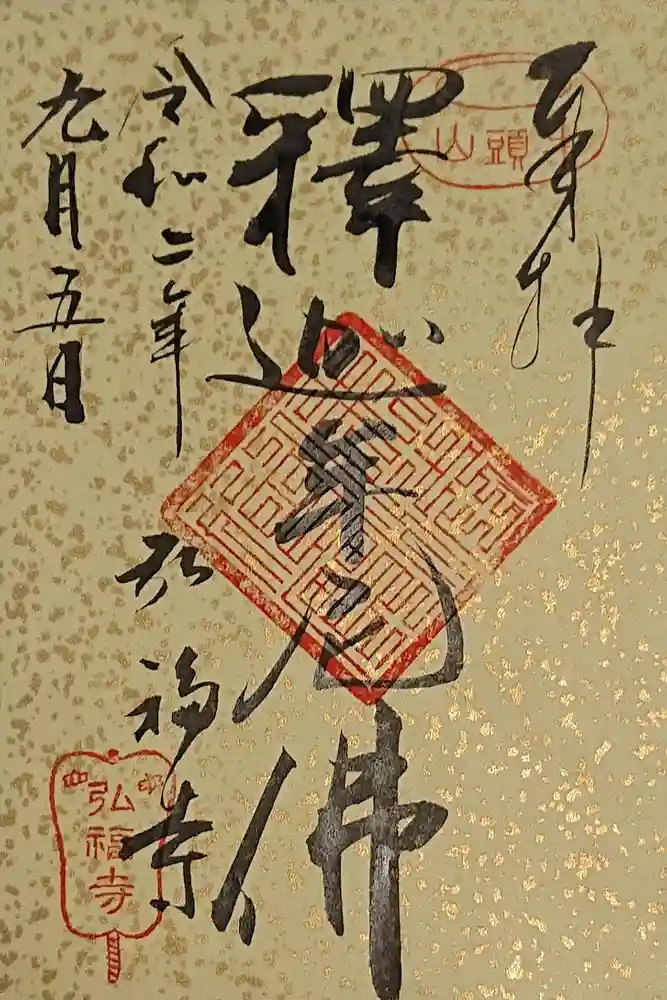 奉拝
山頭
釋迦牟尼佛
令和二年
九月五日
弘福寺
弘福寺